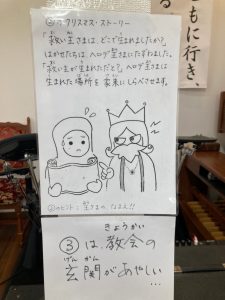 ②の クリスマス・ストーリー
「救い主さまは、どこで生まれましたか?」
はかせたちは、ヘロデ王さまにたずねました。
「救い主が生まれただと?」ヘロデ王さまは
生まれた場所を家来にしらべさせます。
②のヒント:王さまの、なまえ!!
きょうかい
③は、教会の
げんかん
玄関があやしい…
もに行き、